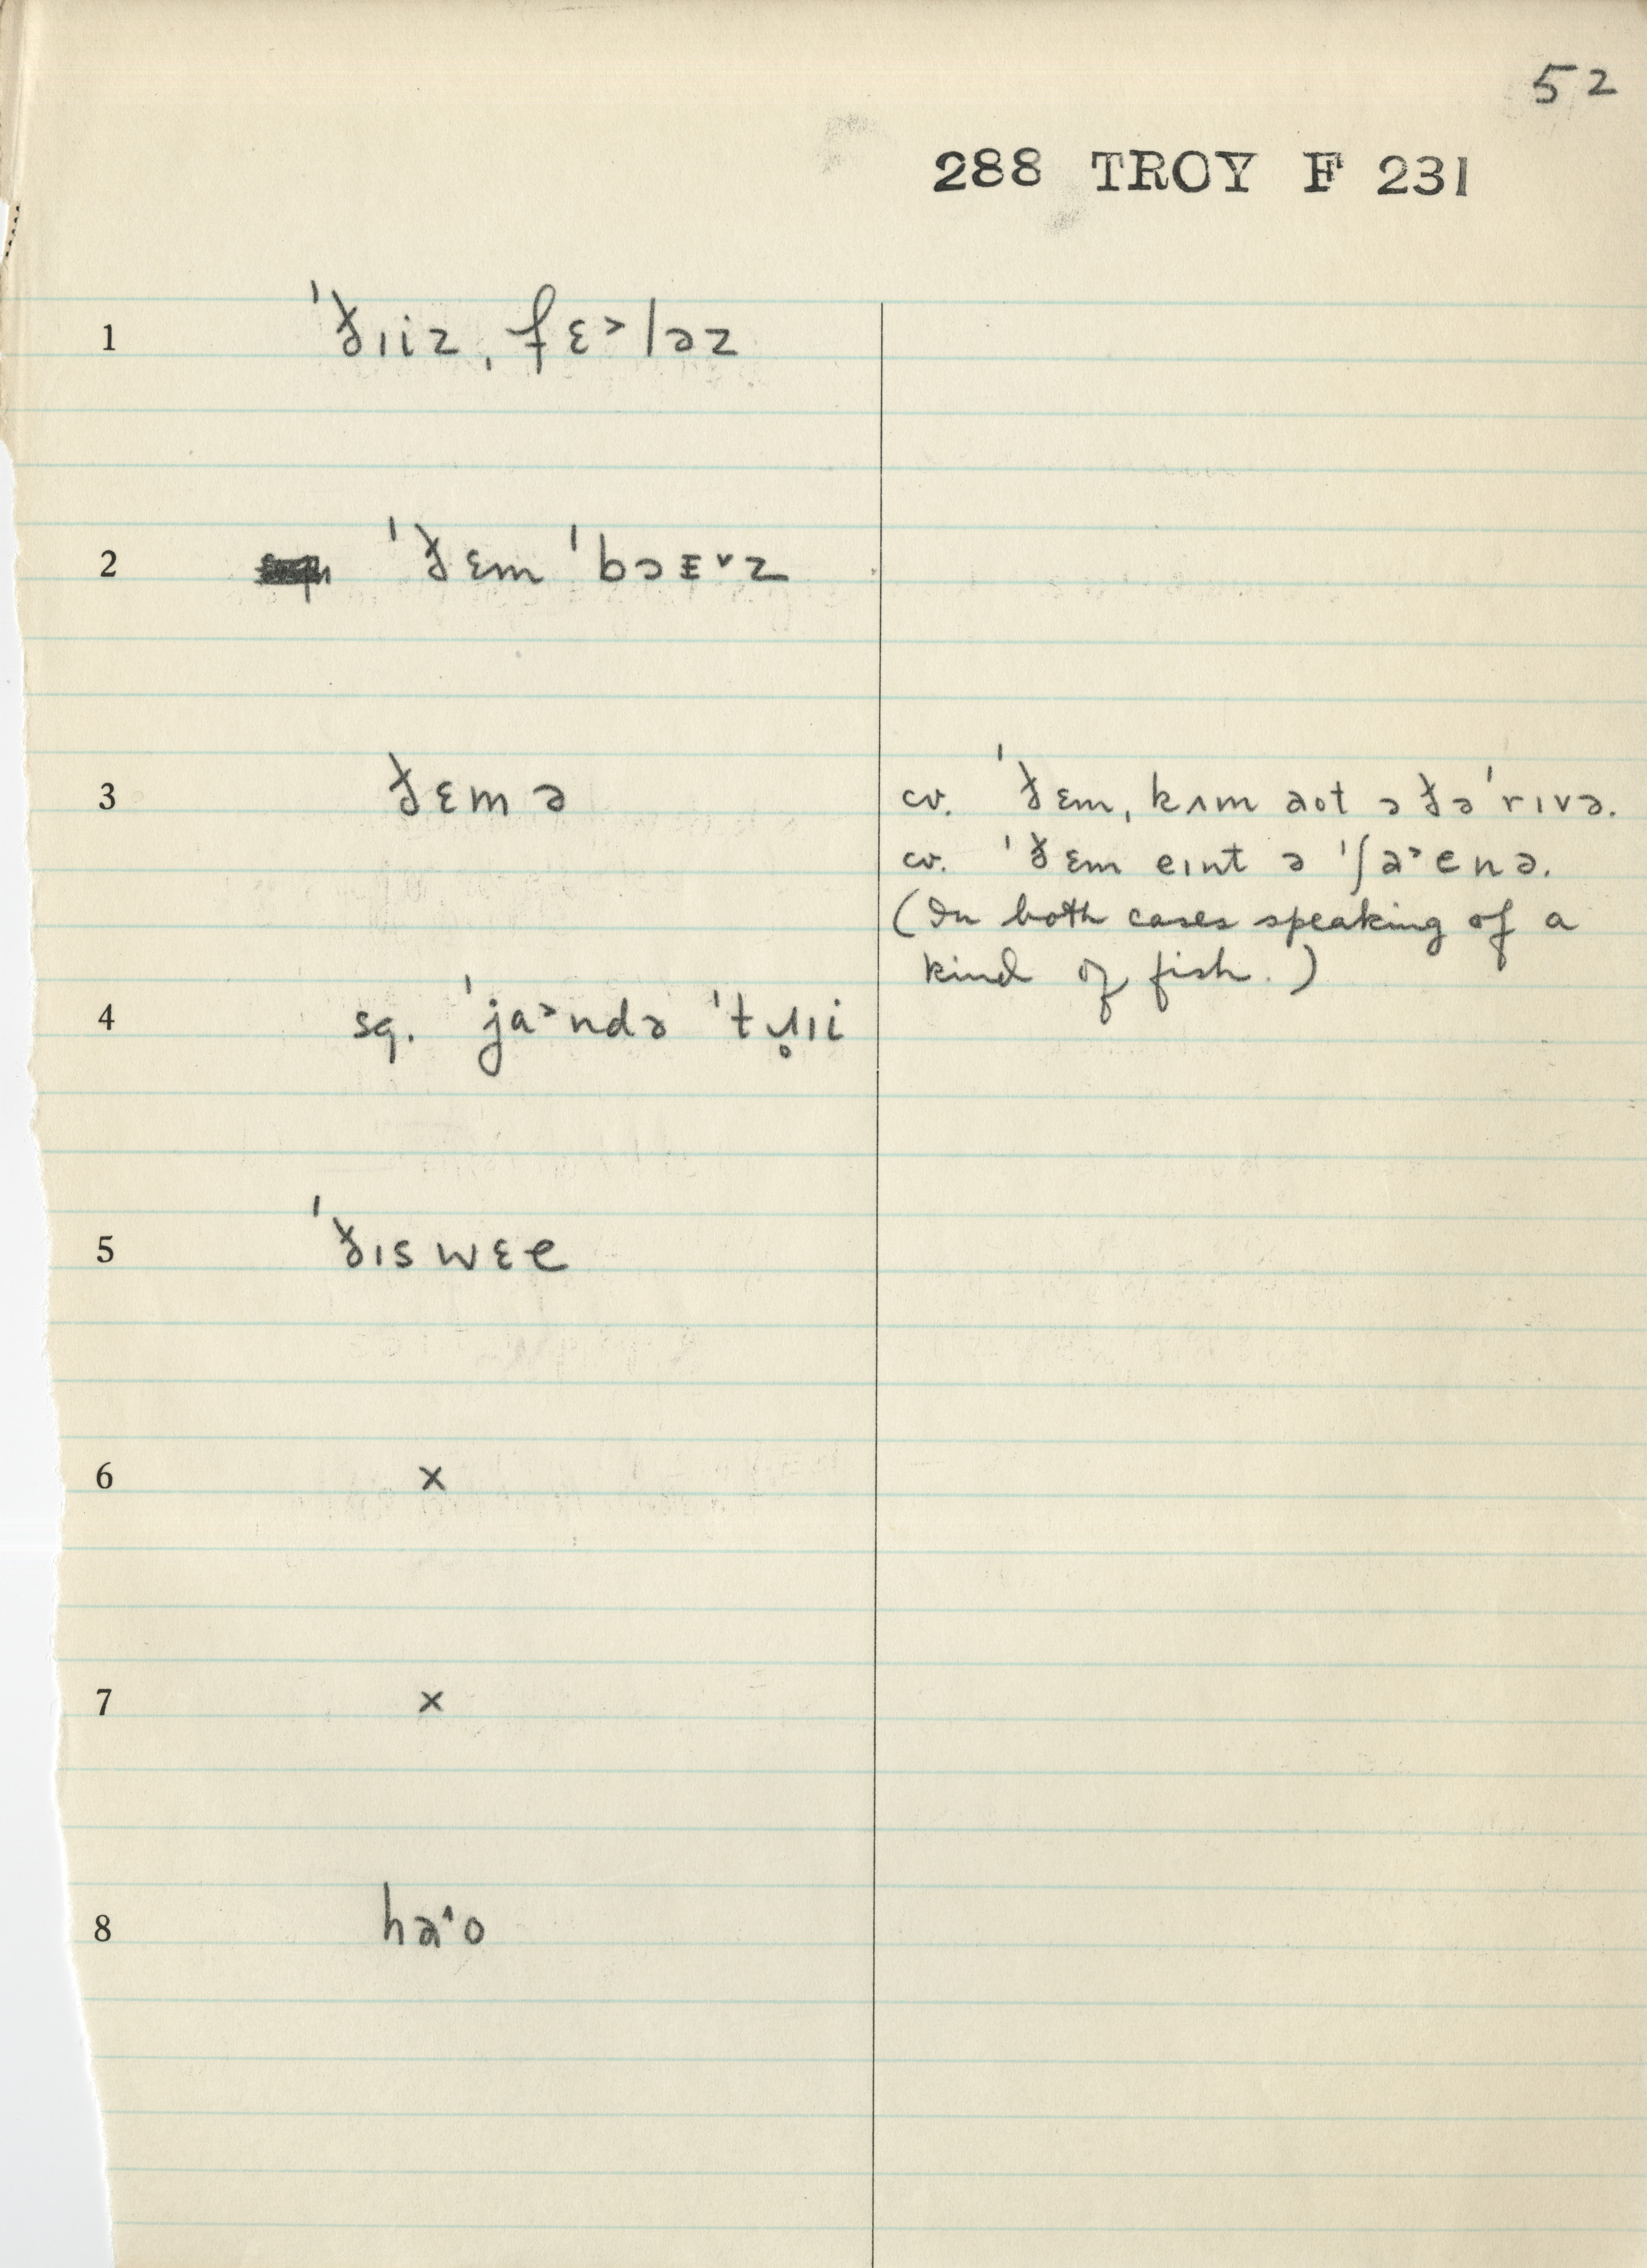 52
288 TROY F 231
1 ˈð̵ɪiz, fɛ˃ləz
2 ˈð̵ɛm ˈbɔᴇ˅z
3 ð̵ɛmə
cv. ˈð̵ɛm, kʌm aot ə ð̵əˈrɪvə.
cv. ˈð̵ɛm eɪnt ə ˈʃa˃enə.
(In both cases speaking of a
kind of fish.)
4 sq. ˈja˃ndə
5 ˈð̵ɪswɛe
6 x
7 x
8 ha˄o